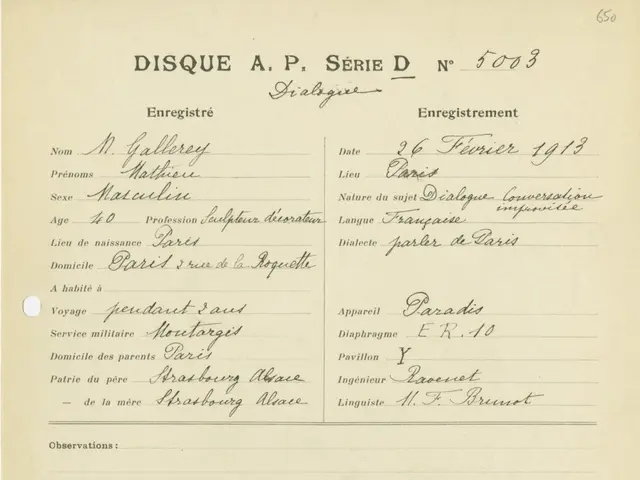 650
DISQUE A. P. SÉRIE D N° 5003
Dialogue
Enregistré
Nom M. Gallerey
Prénoms Mathieu
Sexe Masculin
Age 40 Profession Sculpteur décorateur
Lieu de naissance Paris
Domicile Paris 2 rue de la Roquette
A habité à
Voyage pendant 2 ans
Service militaire Montargis
Domicile des parents Paris
Patrie du père Strasbourg Alsace
— de la mère Strasbourg Alsace
Enregistrement
Date 26 Février 1913
Lieu Paris
Nature du sujet Dialogue Conversation
improvisée
Langue Française
Dialecte parler de Paris
Appareil Paradis
Diaphragme E R. 10
Pavillon Y
Ingénieur Ravenet
Linguiste M. F. Brunot
Observations :